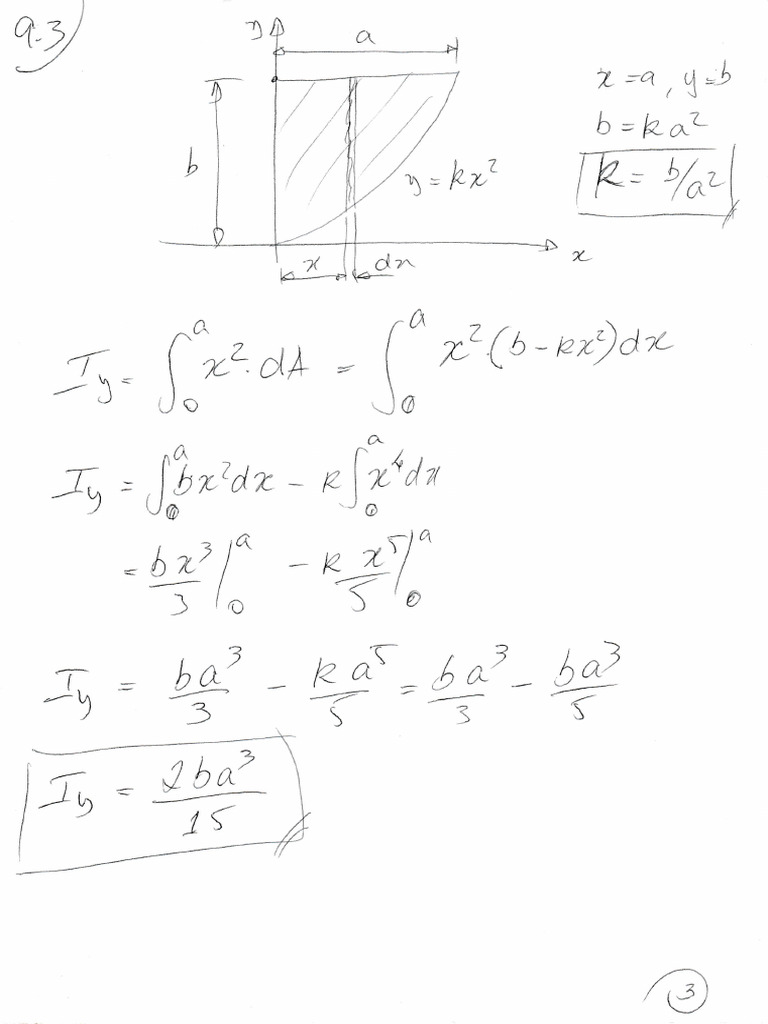 9.3
y
a
x = a, y = b
b = ka²
k = b/a²
b
y = kx²
x
x dx
I_y = ∫₀ᵃ x²·dA = ∫₀ᵃ x²·(b - kx²)dx
I_y = ∫₀ᵃ bx²dx - k∫₀ᵃ x⁴dx
= bx³/3 |₀ᵃ - k x⁵/5 |₀ᵃ
I_y = ba³/3 - ka⁵/5 = ba³/3 - ba³/5
I_y = 2ba³/15
3